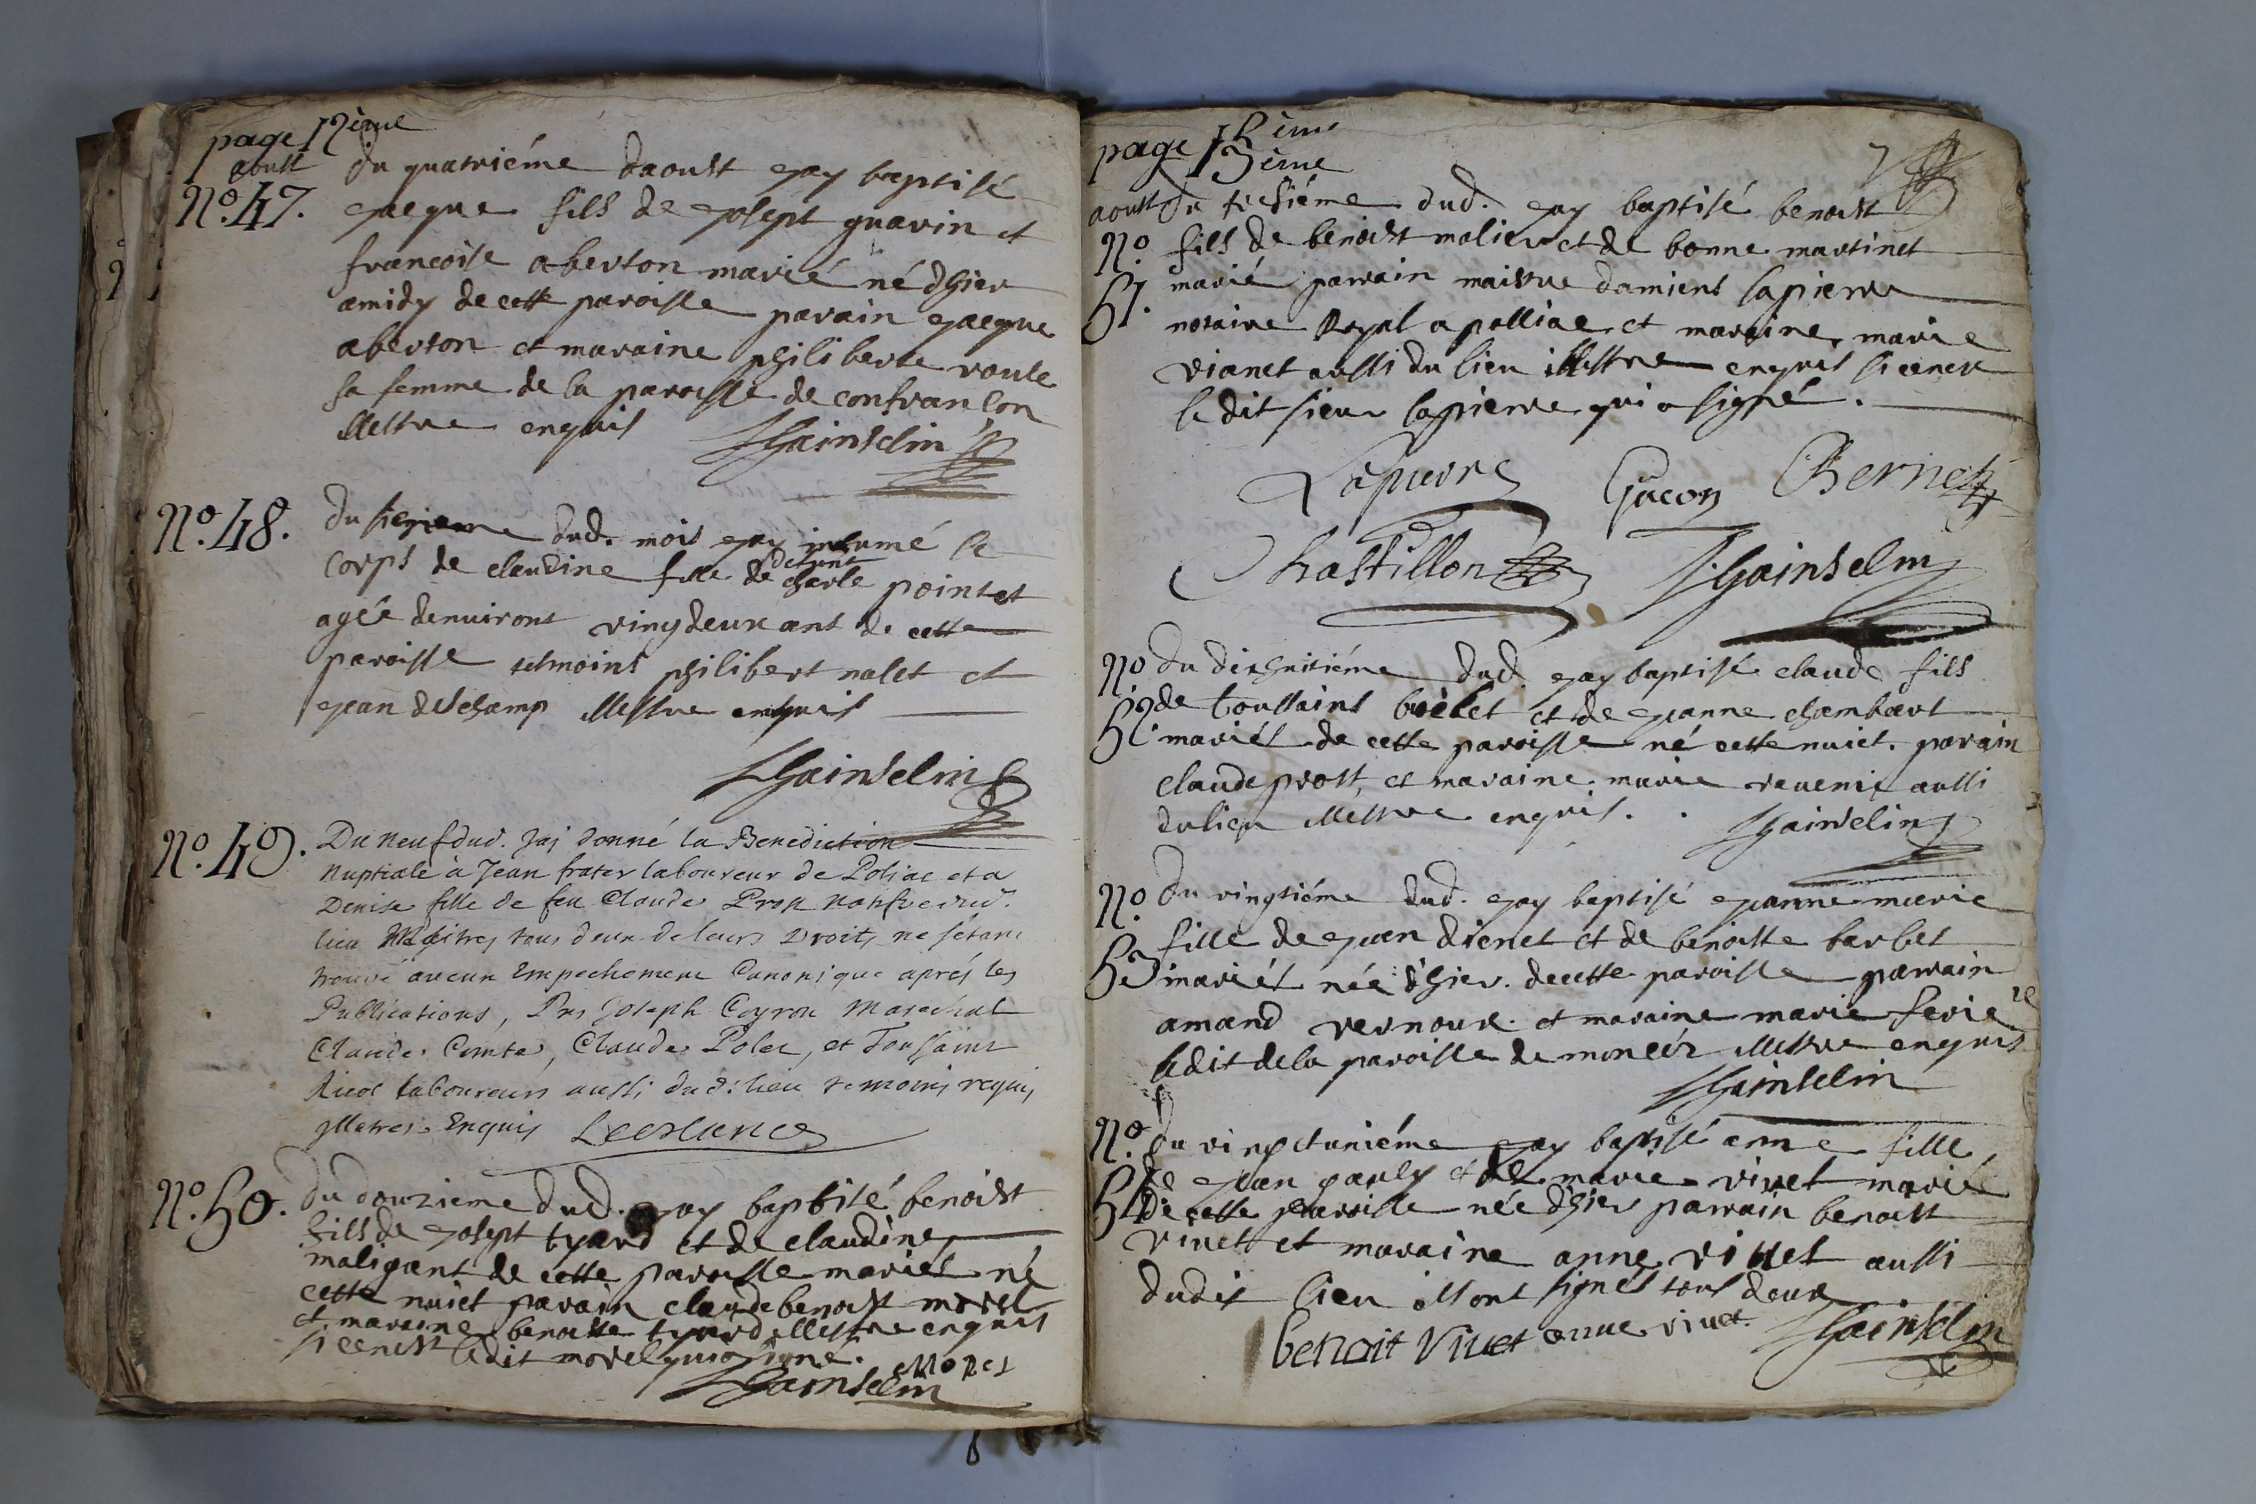 page 12ème
aoust
du quatriéme daoust ejay baptisé
No. 47.
ejacque fils de ejosept guarin et
francoise aberton marié né dhier
amidy de cette paroisse parain ejacque
aberton et maraine philiberte roule
sa femme de la paroisse de confrancon
illettre enquis
Hainselin
No. 48.
du dud. mois ejay inhumé le
corps de claudine fille de defunt charle pointet
agée denuiront vingdeux ant de cette
paroisse temoins philibert nalet et
ejean deschamp illettre enquis
Hainselin
No. 49.
Du neuf dud. jaj donné la Benediction
nuptiale à Jean frater laboureur de Poliac et a
Denise fille de feu Claude Prost dud.
lieu Maitres tous deux de leurs Droits, ne setant
trouvé aucun Empechement Canonique aprés les
Publications, Pns Joseph Ceyron Marechal
Claude Comte, Claude Polet, et Toussaint
laboureurs aussi dud: lieu temoins requis
yllatres Enquis
No. 50.
du douzieme dud. ejay baptisé benoist
fills de ejosept tyard et de claudine
maligant de cette paroisse mariés né
cette nuict parain claude benoist morel
et maraine benoiste tyard illettre enquis
si cenest ledit morel qui a signé.
Morel
Hainselin
page 13ème
7
aoust du tresiéme dud. ejay baptisé benoist
No. 51.
fils de benoist molier et de bonne martinet
marié parrain maistre damiens lapierre
notaire Royal a polliac et maraine marie
vianet aussi du lieu illettre enquis si cenest
le dit sieur lapierre qui a signé.
Lapierre Gacon Bernet
Chastillon Hainselin
No 52.
du dixhuitiéme dud. ejay baptisé claude fils
de toussaint et de ejeanne chambart
mariés de cette paroisse né cette nuict. parain
claude prost, et maraine marie revenie aussi
du lieu illettre enquis.
Hainselin
No. 53
du vingtiéme dud. ejay baptisé ejeanne marie
fille de ejean dienet et de benoiste barbet
mariés née dhier. de cette paroisse parrain
amand vernoux et maraine marie
ledit de la paroisse de moncét illettre enquis
Hainselin
No. 54
du vingctuniéme ejay baptisé anne fille
de ejean pauly et de marie vivet marié
de cette paroisse née dhier parrain benoist
vivet et maraine anne vivet aussi
dudit lieu illont signés tous deux
benoit vivet anne vivet. Hainselin